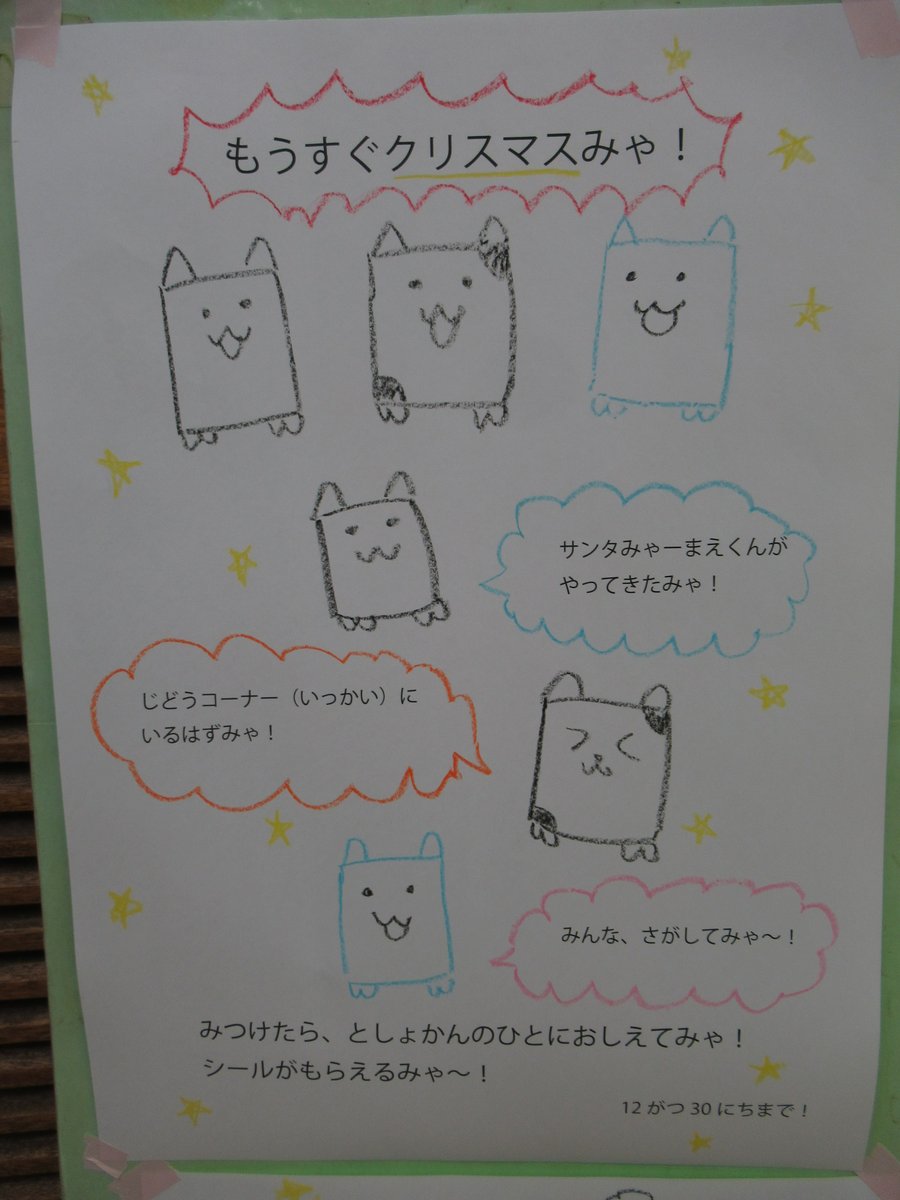 もうすぐクリスマスみゃ！
サンタみゃーまえくんが
やってきたみゃ！
じどうコーナー（いっかい）に
いるはずみゃ！
みんな、さがしてみゃ～！
みつけたら、としょかんのひとにおしえてみゃ！
シールがもらえるみゃ～！
12 がつ 30 にちまで！